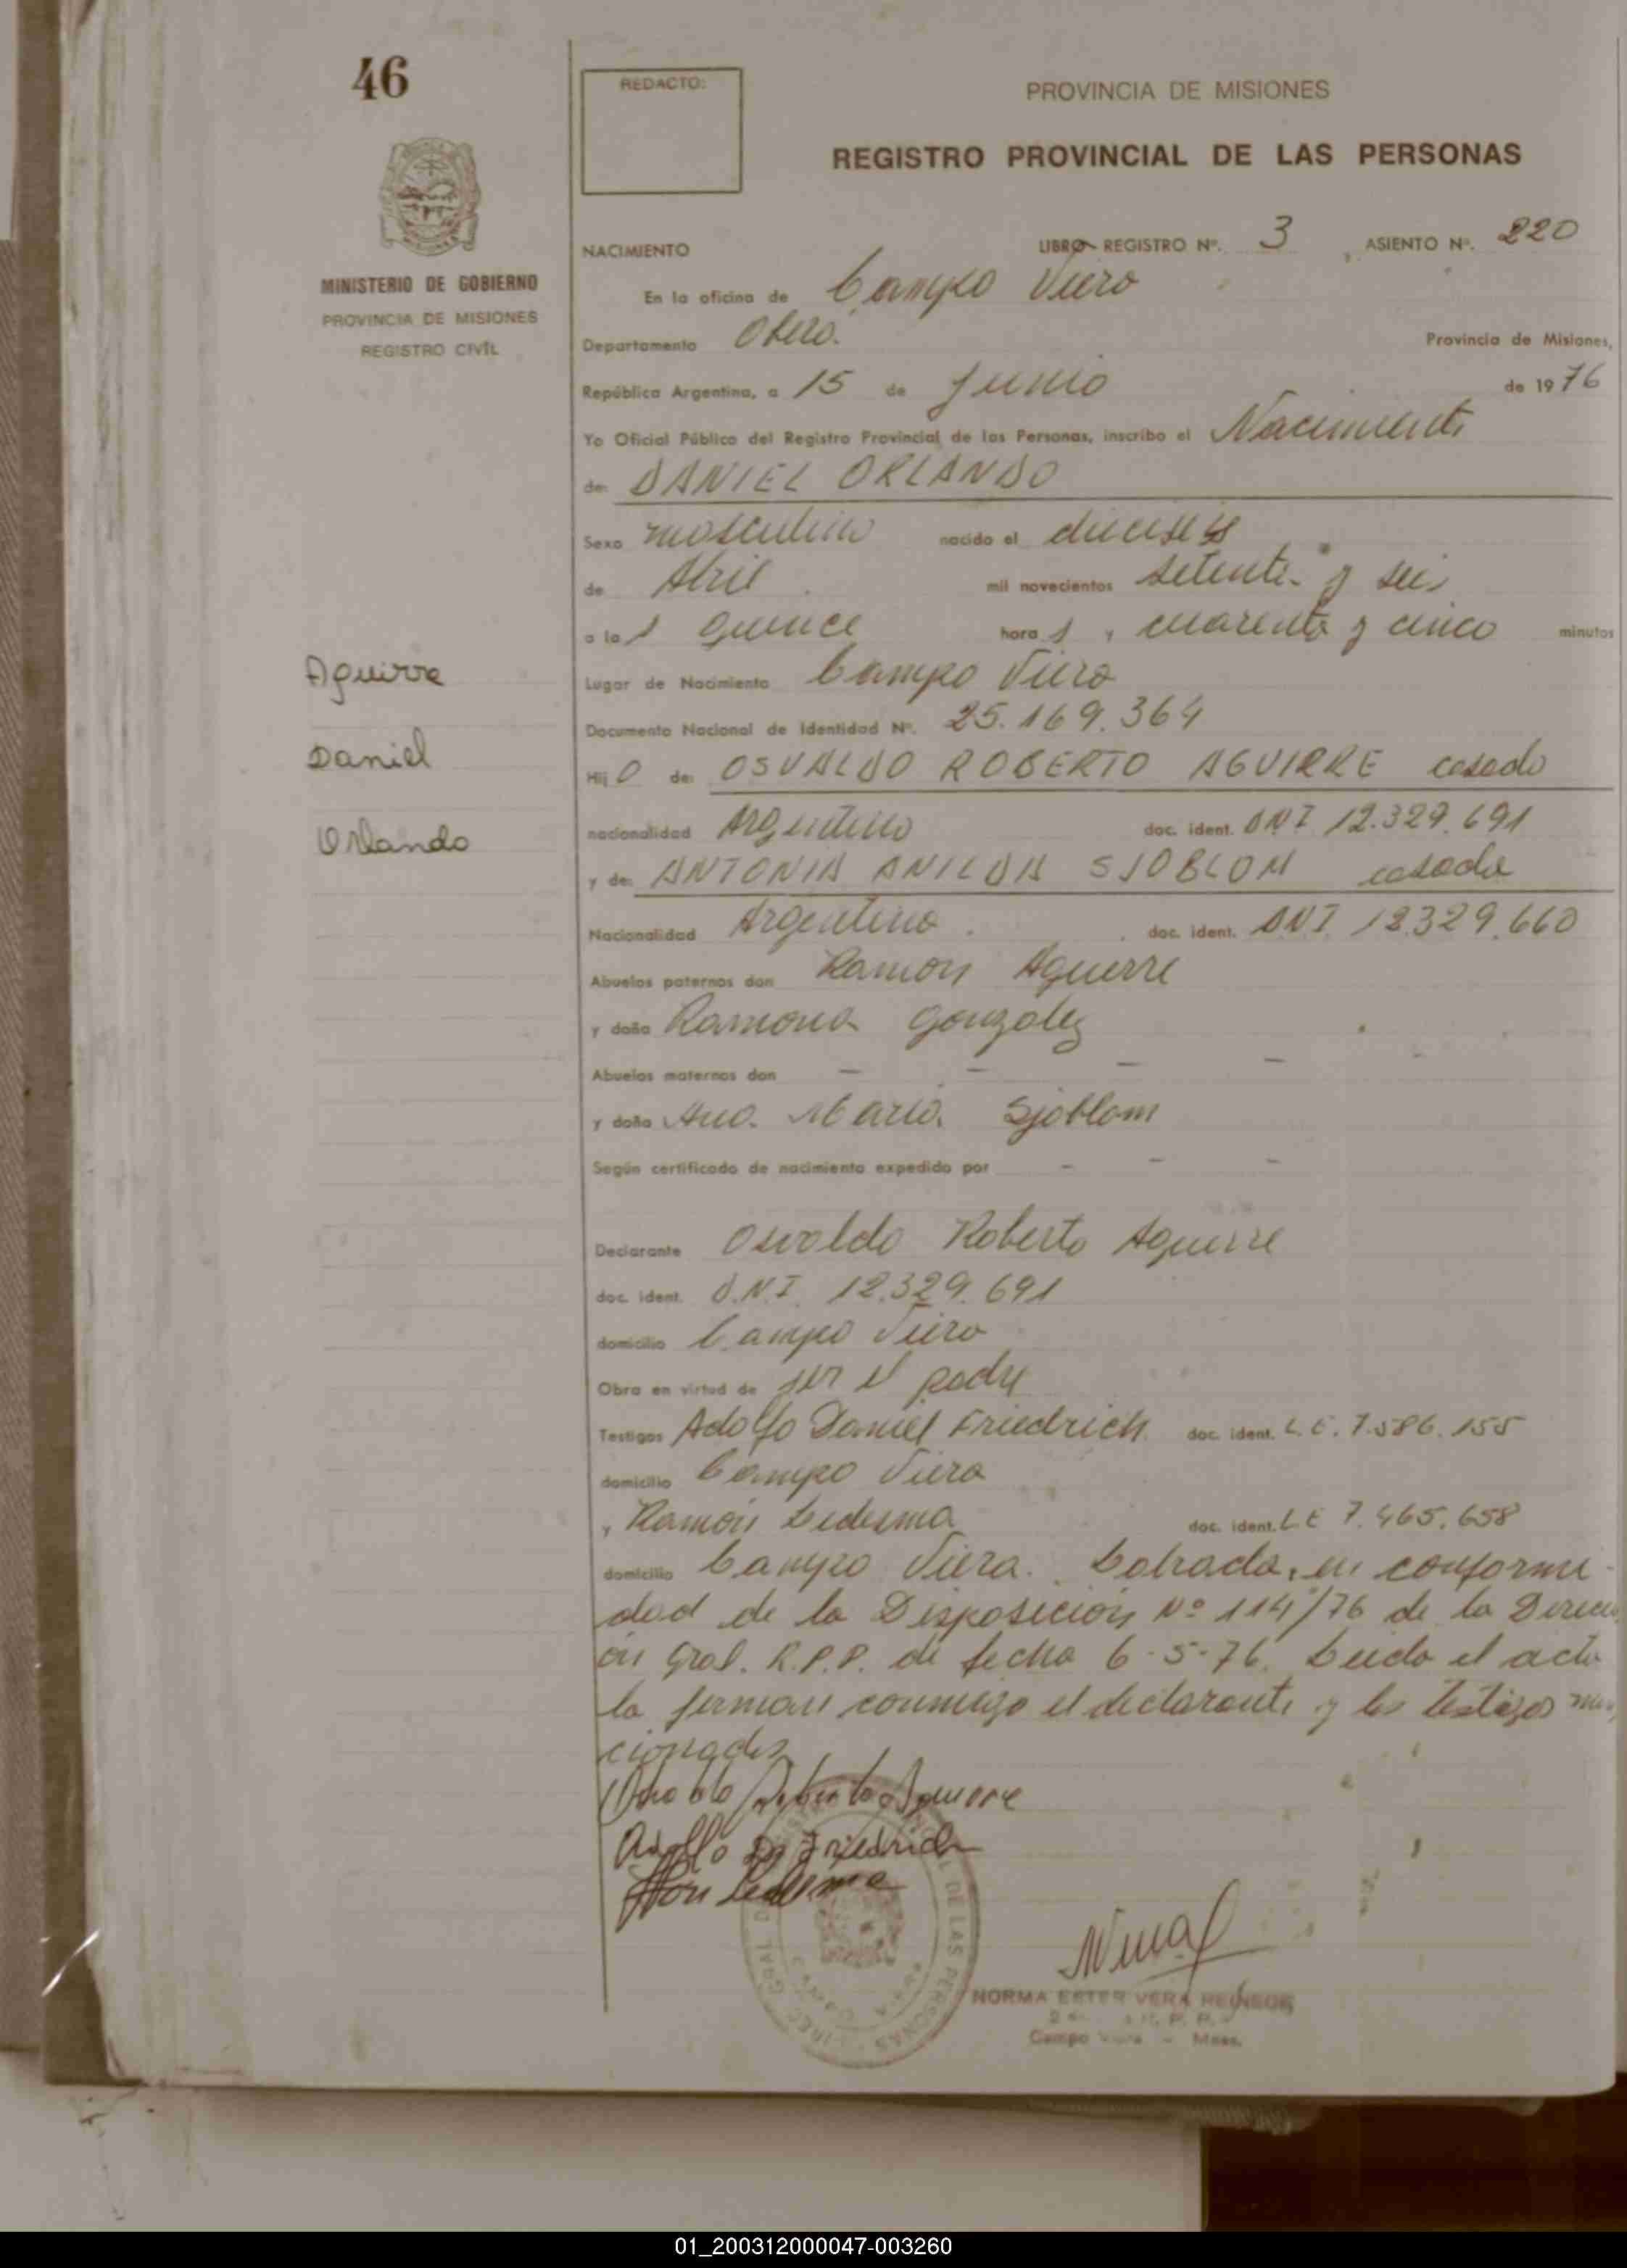 46
REDACTO:
PROVINCIA DE MISIONES
REGISTRO PROVINCIAL DE LAS PERSONAS
MINISTERIO DE GOBIERNO
PROVINCIA DE MISIONES
REGISTRO CIVIL
NACIMIENTO LIBRO REGISTRO Nº. 3, ASIENTO Nº. 220
En la oficina de Campo Viera
Departamento Oberá. Provincia de Misiones,
República Argentina, a 15 de Junio de 1976
Yo Oficial Público del Registro Provincial de las Personas, inscribo el Nacimiento
de: DANIEL ORLANDO
Sexo masculino nacido el dieciséis
de Abril mil novecientos setenta y seis
a las quince horas, cuarenta y cinco minutos
Lugar de Nacimiento Campo Viera
Documento Nacional de Identidad Nº. 25.169.364
Hijo de: OSVALDO ROBERTO AGUIRRE casado
nacionalidad Argentino doc. ident. DNI 12.329.691
y de: ANTONIA ANILDA SJOBLOM casada
Nacionalidad Argentina. doc. ident. DNI 12.329.660
Abuelos paternos don Ramón Aguirre
y doña Ramona Gonzalez
Abuelos maternos don — — — —
y doña Ana Maria Sjoblom
Según certificado de nacimiento expedido por — — —
Declarante Osvaldo Roberto Aguirre
doc. ident. D.N.I. 12.329.691
domicilio Campo Viera
Obra en virtud de ser el padre
Testigos Adolfo Daniel Friedrich doc. ident. L.E. 7.586.155
domicilio Campo Viera
y Ramón Ledesma doc. ident. L E 7.465.658
domicilio Campo Viera. Labrada, en conformi-
dad de la Disposición Nº 114/76 de la Direcci
ón Gral. R.P.P. de fecha 6-5-76. Leida el acta
la firman conmigo el declarante y los testigos men
cionados
Aguirre
Daniel
Orlando
Adolfo D. Friedrich
Ledesma
DE LAS PERSONAS
NORMA ESTER VERA
Campo Viera - Mnes.
01_200312000047-003260